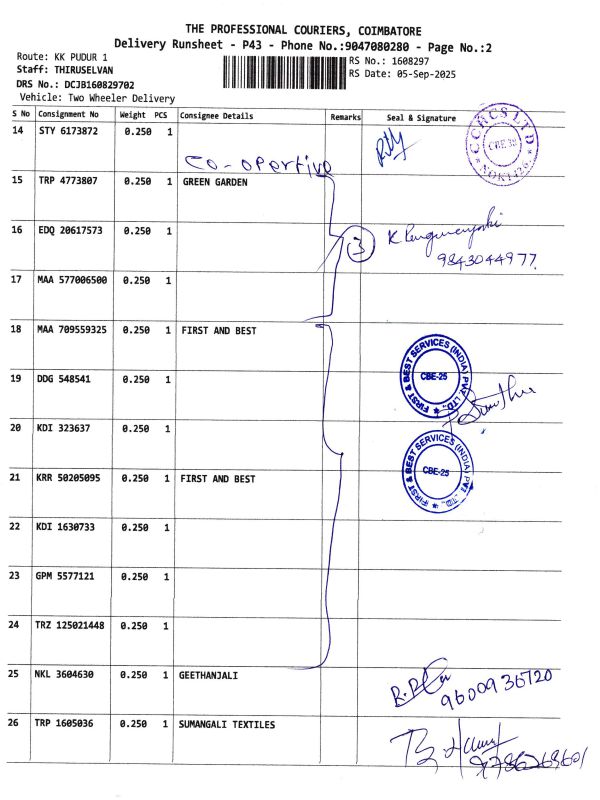 THE PROFESSIONAL COURIERS, COIMBATORE
Delivery Runsheet - P43 - Phone No.:9047080280 - Page No.:2
Route: KK PUDUR 1
RS No.: 1608297
Staff: THIRUSELVAN
RS Date: 05-Sep-2025
DRS No.: DCJB160829702
Vehicle: Two Wheeler Delivery
S No Consignment No Weight PCS Consignee Details Remarks Seal & Signature
14 STY 6173872 0.250 1
CCRCS LTD
CBE 38
Co-opertive
15 TRP 4773807 0.250 1 GREEN GARDEN
16 EDQ 20617573 0.250 1
3
9843044977
17 MAA 577006500 0.250 1
18 MAA 709559325 0.250 1 FIRST AND BEST
FIRST & BEST SERVICES (INDIA) PVT. LTD.
CBE-25
19 DDG 548541 0.250 1
20 KDI 323637 0.250 1
FIRST & BEST SERVICES (INDIA) PVT. LTD.
CBE-25
21 KRR 50205095 0.250 1 FIRST AND BEST
22 KDI 1630733 0.250 1
23 GPM 5577121 0.250 1
24 TRZ 125021448 0.250 1
25 NKL 3604630 0.250 1 GEETHANJALI
9600936720
26 TRP 1605036 0.250 1 SUMANGALI TEXTILES